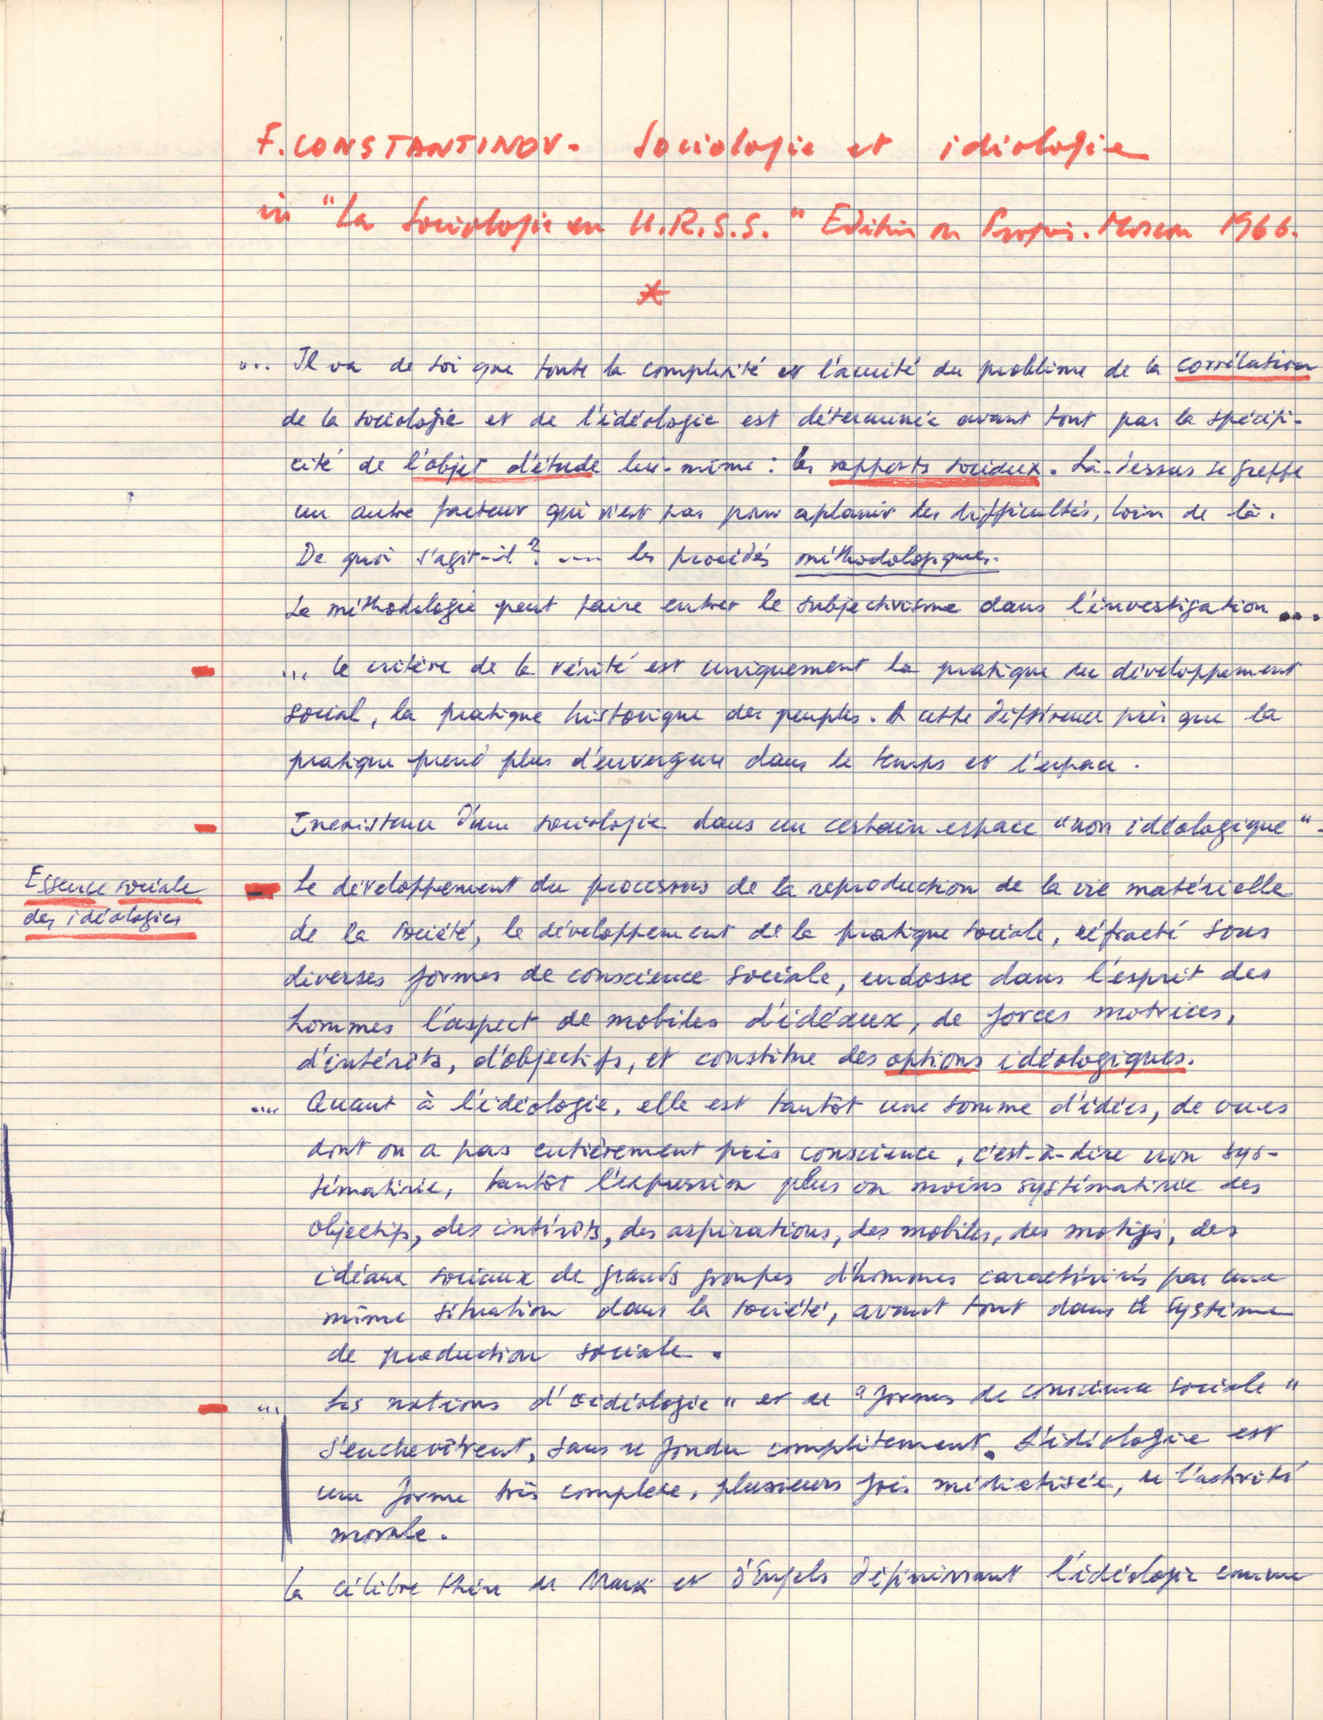 F. CONSTANTINOV - Sociologie et idéologie
in "La Sociologie en U.R.S.S." Edition du Progrès. Moscou 1966.
*
... Il va de soi que toute la complexité et l'acuité du problème de la corrélation
de la sociologie et de l'idéologie est déterminée avant tout par la spécifi-
cité de l'objet d'étude lui-même : les rapports sociaux. Là-dessus se greffe
un autre facteur qui n'est pas pour aplanir les difficultés, loin de là.
De quoi s'agit-il ? ... les procédés méthodologiques.
La méthodologie peut faire entrer le subjectivisme dans l'investigation ...
- ... le critère de la vérité est uniquement la pratique du développement
social, la pratique historique des peuples. A cette différence près que la
pratique prend plus d'envergure dans le temps et l'espace.
- Inexistence d'une sociologie dans un certain espace "non idéologique".
Essence sociale
des idéologies
- Le développement du processus de la reproduction de la vie matérielle
de la société, le développement de la pratique sociale, réfracté sous
diverses formes de conscience sociale, endosse dans l'esprit des
hommes l'aspect de mobiles d'idéaux, de forces motrices,
d'intérêts, d'objectifs, et constitue des options idéologiques.
... Quant à l'idéologie, elle est tantôt une somme d'idées, de vues
dont on a pas entièrement pris conscience, c'est-à-dire non sys-
tématisée, tantôt l'expression plus ou moins systématisée des
objectifs, des intérêts, des aspirations, des mobiles, des motifs, des
idéaux sociaux de grands groupes d'hommes caractérisés par une
même situation dans la société, avant tout dans le système
de production sociale.
- ... Les notions d'"idéologie" et de "formes de conscience sociale"
s'enchevêtrent, sans se fondre complètement. L'idéologie est
une forme très complexe, plusieurs fois médiatisée, de l'activité
morale.
La célèbre thèse de Marx et d'Engels définissant l'idéologie comme